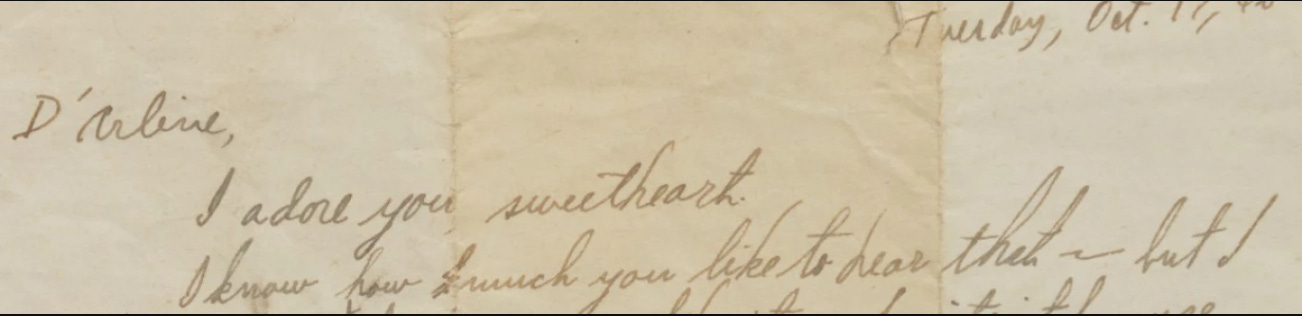 Tuesday, Oct. 17,
D'Arline,
I adore you sweetheart.
I know how much you like to hear that — but I